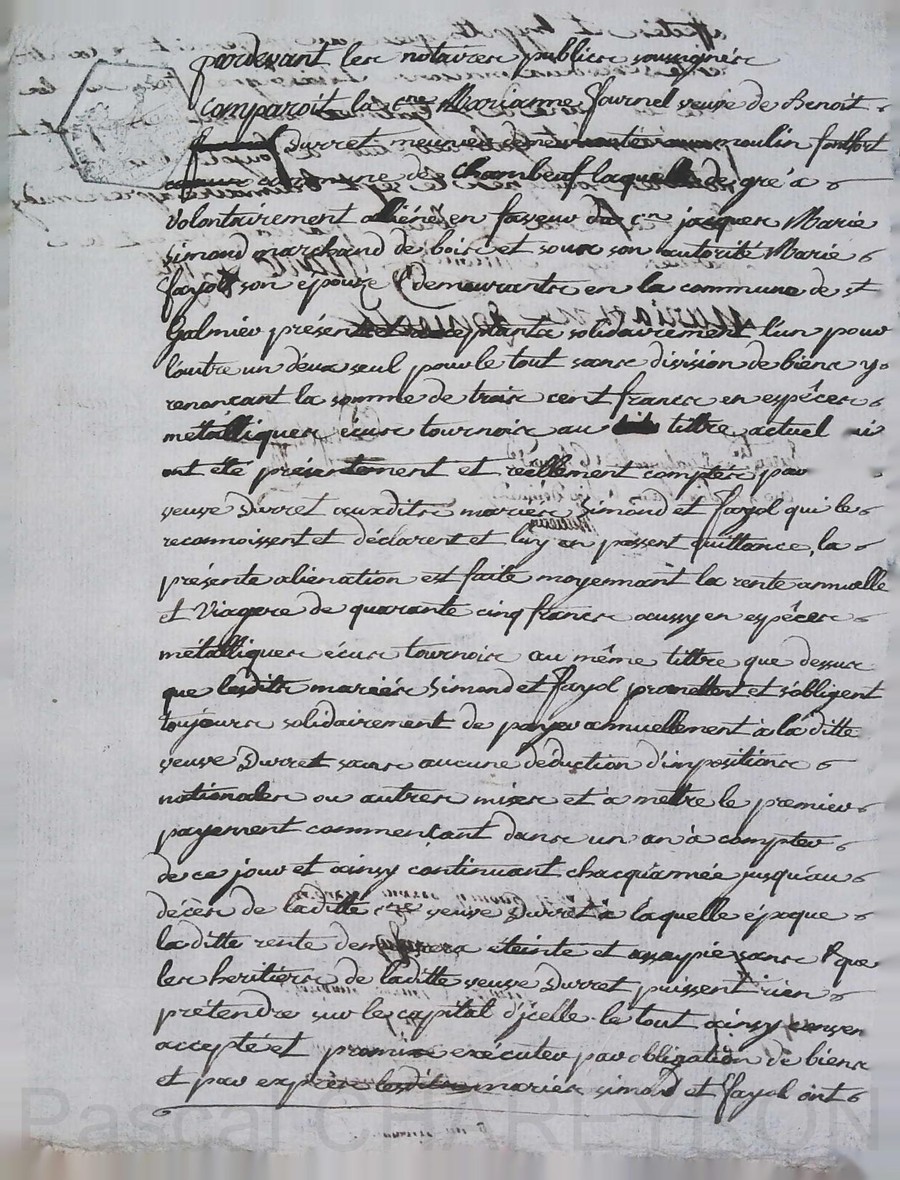 pardevant les notaires publics soussignés
comparoit la cne Marianne Journel veuve de Benoit
Durret meunier moulin fontfort
commune de Chambeuf laquelle de gré à
volontairement aliéné en faveur du cn jacques Marie
simond marchand de bois et sous son autorité Marie
fayol son épouze demeurants en la commune de st
Galmier présents et acceptants solidairement l'un pour
l'autre un deux seul pour le tout sans division de biens y
renonçant la somme de trois cent francs en espéces
métalliques écus tournois au tittre actuel
ont été présentement et réellement comptés par
veuve Durret auxdits mariés Simond et fayol qui les
reconnoissent et déclarent et luy en passent quittance, la
présente alienation est faite moyennant la rente annuelle
et Viagere de quarante cinq francs aussy en espéces
métalliques écus tournois au même tittre que dessus
que lesdits mariés Simond et fayol promettent et s'obligent
toujours solidairement de payer annuellement à la ditte
veuve Durret sans aucune déduction d'impositions
nationales ou autres mises et à mettre le premier
payement commençant dans un an à compter
de ce jour et ainsy continuant chacqu'année jusqu'au
décès de laditte cne veuve Durret à laquelle époque
la ditte rente demeurera éteinte et assoypie sans que
les heritiers de laditte veuve Durret puissent rien
prétendre sur le capital d'jcelle. le tout ainsy
accepté et promis exécuter par obligation de biens
et par exprès lesdits mariés simond et fayol ont
Pascal CHAREYRON